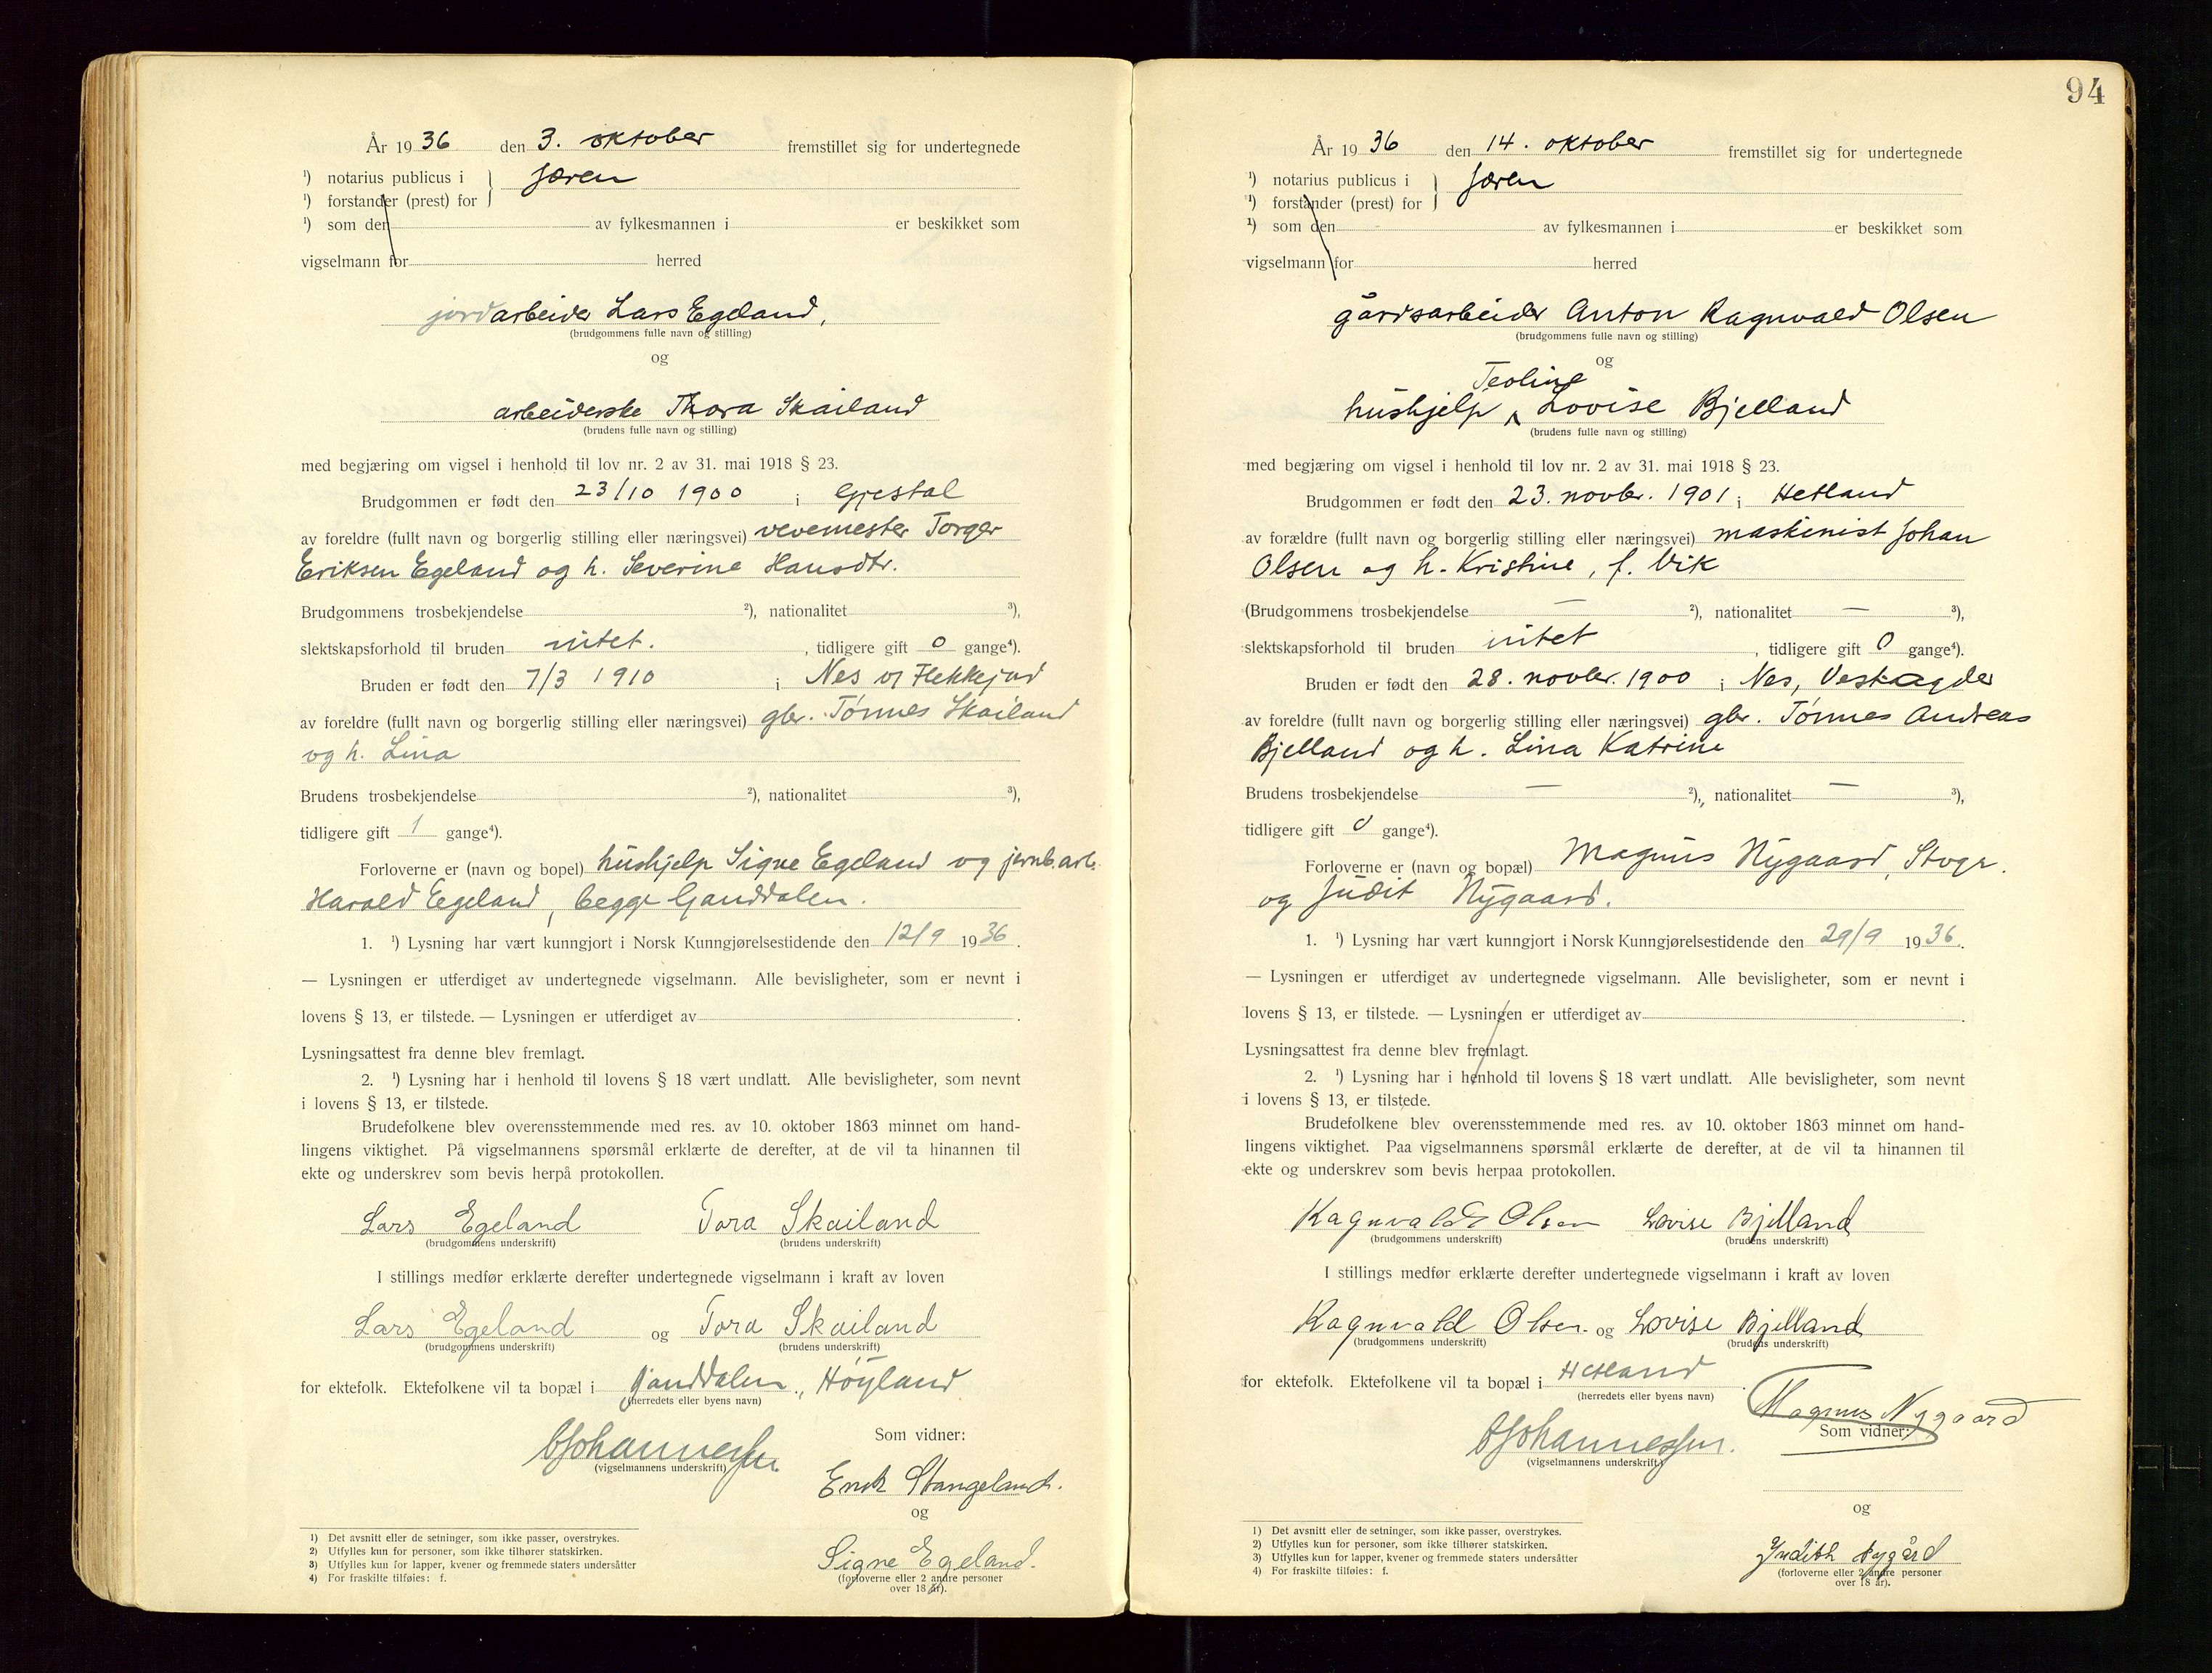 År 1936 den 3. oktober fremstillet sig for undertegnede
¹) notarius publicus i } Jæren
¹) forstander (prest) for
¹) som den av fylkesmannen i er beskikket som
vigselmann for herred
jordarbeider Lars Egeland,
(brudgommens fulle navn og stilling)
og
arbeiderske Thora Skailand
(brudens fulle navn og stilling)
med begjæring om vigsel i henhold til lov nr. 2 av 31. mai 1918 § 23.
Brudgommen er født den 23/10 1900 i Gjestal
av foreldre (fullt navn og borgerlig stilling eller næringsvei) vevemester Torger
Eriksen Egeland og h. Severine Hansdtr.
Brudgommens trosbekjendelse ²), nationalitet ³),
slektskapsforhold til bruden intet. , tidligere gift 0 gange⁴).
Bruden er født den 7/3 1910 i Nes v/ Flekkefjord
av foreldre (fullt navn og borgerlig stilling eller næringsvei) gbr. Tønnes Skailand
og h. Lina
Brudens trosbekjendelse ²), nationalitet ³),
tidligere gift 1 gange⁴).
Forloverne er (navn og bopel) hushjelp Signe Egeland og jernb.arb.
Harald Egeland, begge Ganddalen.
1. ¹) Lysning har vært kunngjort i Norsk Kunngjørelsestidende den 12/9 1936.
— Lysningen er utferdiget av undertegnede vigselmann. Alle bevisligheter, som er nevnt i
lovens § 13, er tilstede. — Lysningen er utferdiget av .
Lysningsattest fra denne blev fremlagt.
2. ¹) Lysning har i henhold til lovens § 18 vært undlatt. Alle bevisligheter, som nevnt
i lovens § 13, er tilstede.
Brudefolkene blev overensstemmende med res. av 10. oktober 1863 minnet om hand-
lingens viktighet. På vigselmannens spørsmål erklærte de derefter, at de vil ta hinannen til
ekte og underskrev som bevis herpå protokollen.
Lars Egeland Tora Skailand
(brudgommens underskrift) (brudens underskrift)
I stillings medfør erklærte derefter undertegnede vigselmann i kraft av loven
Lars Egeland og Tora Skailand
(brudgommens underskrift) (brudens underskrift)
for ektefolk. Ektefolkene vil ta bopæl i Ganddalen, Høyland
(herredets eller byens navn)
Som vidner:
Johannessen
(vigselmannens underskrift)
Erik Stangeland.
og
Signe Egeland.
(forloverne eller 2 andre personer
over 18 år).
1) Det avsnitt eller de setninger, som ikke passer, overstrykes.
2) Utfylles kun for personer, som ikke tilhører statskirken.
3) Utfylles kun for lapper, kvener og fremmede staters undersåtter
4) For fraskilte tilføies: f.
94
År 1936 den 14. oktober fremstillet sig for undertegnede
¹) notarius publicus i } Jæren
¹) forstander (prest) for
¹) som den av fylkesmannen i er beskikket som
vigselmann for herred
gårdsarbeider Anton Ragnvald Olsen
(brudgommens fulle navn og stilling)
og
Teoline
hushjelp Lovise Bjelland
(brudens fulle navn og stilling)
med begjæring om vigsel i henhold til lov nr. 2 av 31. mai 1918 § 23.
Brudgommen er født den 23. novbr. 1901 i Hetland
av forældre (fullt navn og borgerlig stilling eller næringsvei) maskinist Johan
Olsen og h. Kristine, f. Vik
(Brudgommens trosbekjendelse — ²), nationalitet — ³),
slektskapsforhold til bruden intet , tidligere gift 0 gange⁴).
Bruden er født den 28. novbr. 1900 i Nes, Vestagder
av foreldre (fullt navn og borgerlig stilling eller næringsvei) gbr. Tønnes Andreas
Bjelland og h. Lina Katrine
Brudens trosbekjendelse — ²), nationalitet — ³),
tidligere gift 0 gange⁴).
Forloverne er (navn og bopæl) Magnus Nygaard, Stvgr.
og Judit Nygaard.
1. ¹) Lysning har vært kunngjort i Norsk Kunngjørelsestidende den 29/9 1936.
— Lysningen er utferdiget av undertegnede vigselmann. Alle bevisligheter, som er nevnt i
lovens § 13, er tilstede. — Lysningen er utferdiget av .
Lysningsattest fra denne blev fremlagt.
2. ¹) Lysning har i henhold til lovens § 18 vært undlatt. Alle bevisligheter, som nevnt
i lovens § 13, er tilstede.
Brudefolkene blev overensstemmende med res. av 10. oktober 1863 minnet om hand-
lingens viktighet. Paa vigselmannens spørsmål erklærte de derefter, at de vil ta hinannen til
ekte og underskrev som bevis herpaa protokollen.
Ragnvald Olsen Lovise Bjelland
(brudgommens underskrift) (brudens underskrift)
I stillings medfør erklærte derefter undertegnede vigselmann i kraft av loven
Ragnvald Olsen og Lovise Bjelland
(brudgommens underskrift) (brudens underskrift)
for ektefolk. Ektefolkene vil ta bopæl i Hetland .
(herredets eller byens navn)
Magnus Nygaard
Som vidner:
Johannessen.
(vigselmannens underskrift)
og
Judith Nygård
(forloverne eller 2 andre personer
over 18 år).
1) Det avsnitt eller de setninger, som ikke passer, overstrykes.
2) Utfylles kun for personer, som ikke tilhører statskirken.
3) Utfylles kun for lapper, kvener og fremmede staters undersåtter
4) For fraskilte tilføies: f.